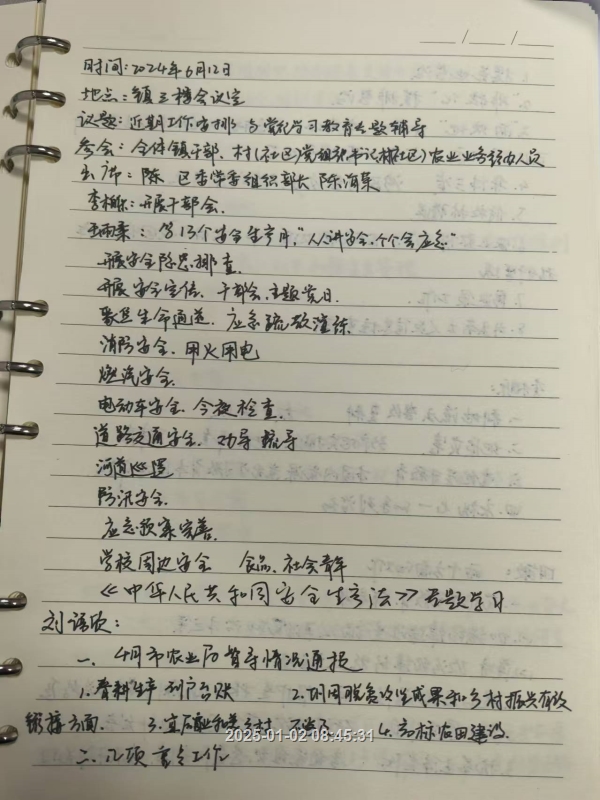 时间:2024年6月12日
地点:镇三楼会议室
议题:近期工作安排与党纪学习教育专题辅导
参会:全体镇干部、村(社区)党组织书记、村(社区)农业业务经办人员
出席:陈 区委常委组织部长 陈海集
李:开展干部会.
王雨柔:第13个安全生产月,"人人讲安全,个个会应急"
开展安全隐患排查.
开展安全宣传、干部会、主题党日.
聚焦生命通道,应急疏散演练.
消防安全、用火用电
燃汽安全.
电动车安全、今夜检查.
道路交通安全、劝导 疏导
河道巡逻
防汛安全.
应急预案完善.
学校周边安全 食品、社会青年
《中华人民共和国安全生产法》专题学习
刘语欣:
一、4月市农业局督导情况通报
1.春耕生产 到户台账 2.巩固脱贫攻坚成果和乡村振兴有效
衔接方面. 3.宜居和美乡村 4.高标农田建设.
二、几项重点工作
2025-01-02 08:45:31